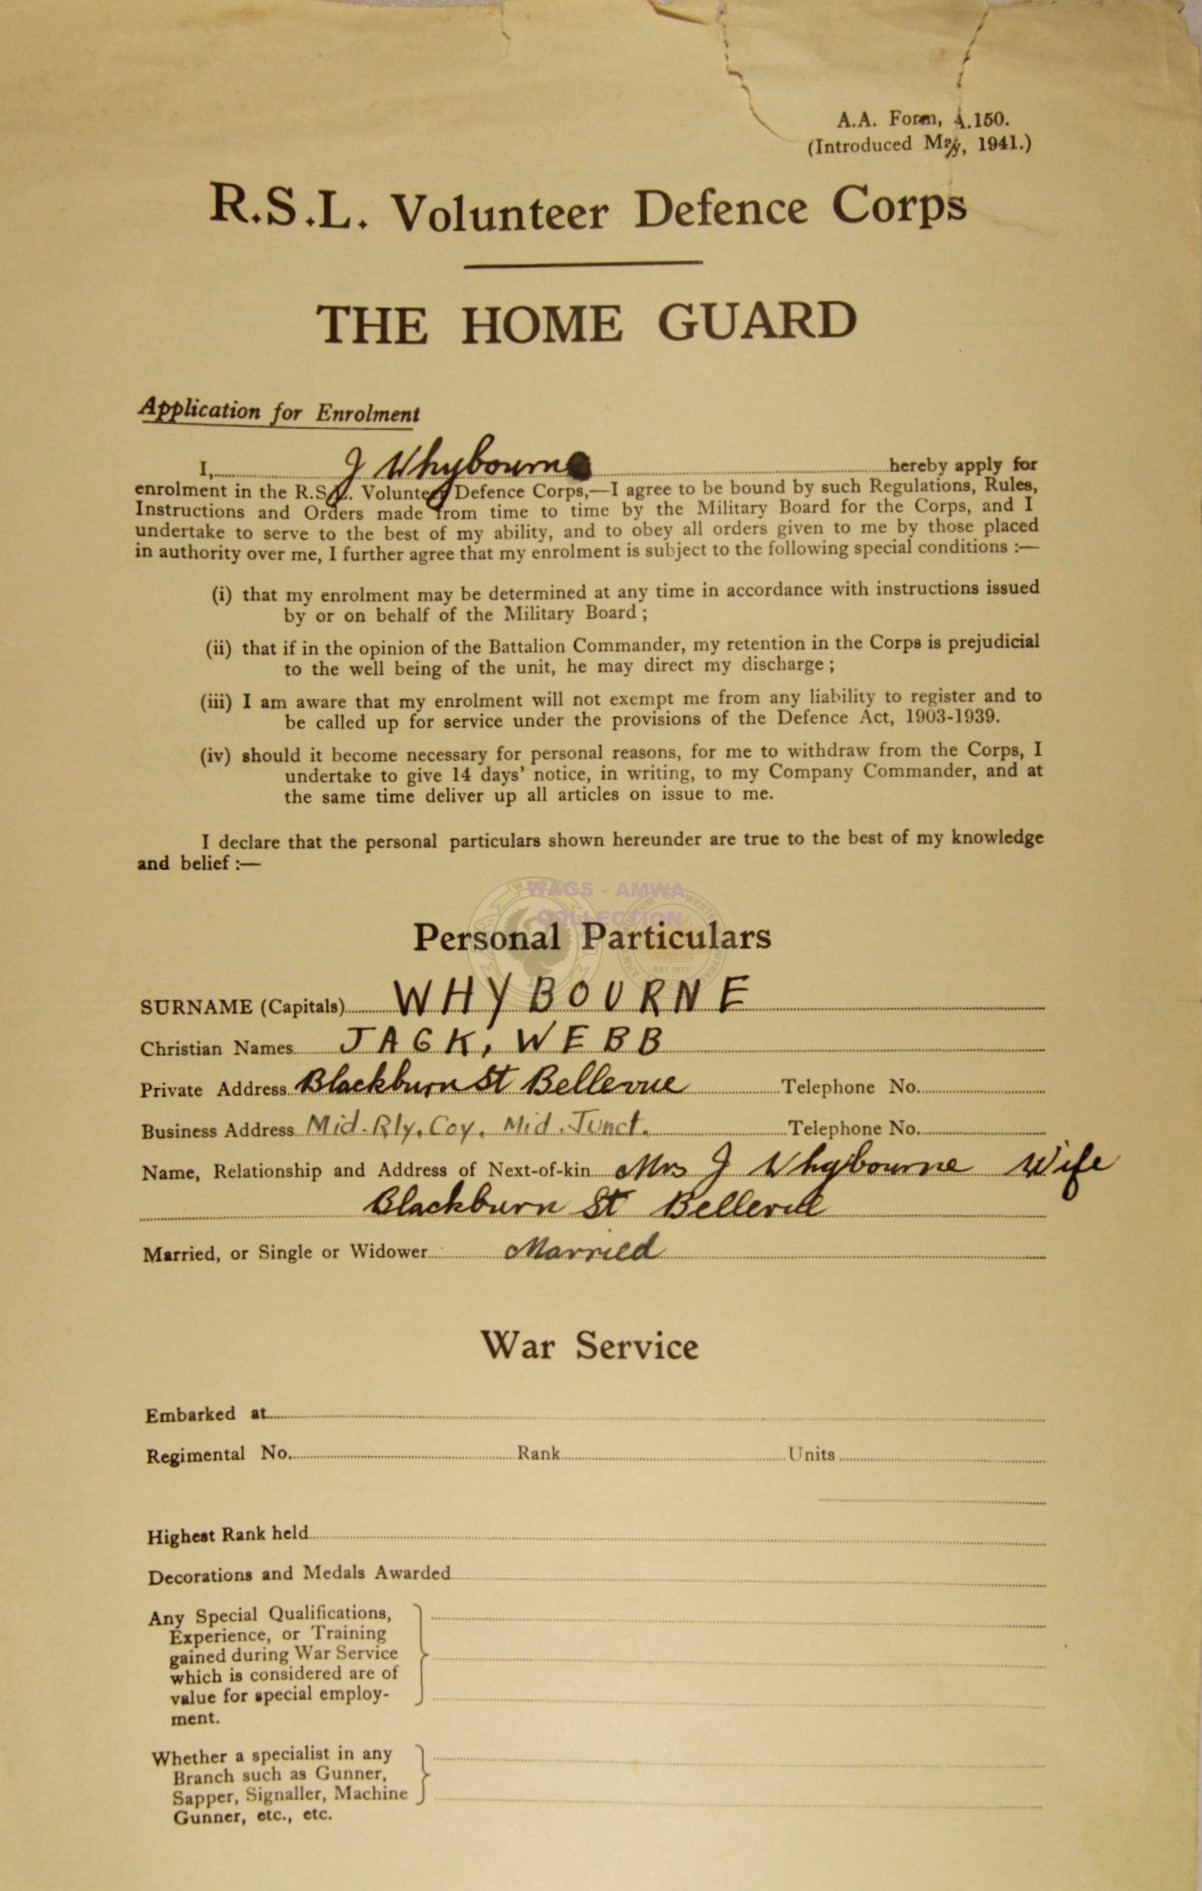 A.A. Form, A.150.
(Introduced May, 1941.)
R.S.L. Volunteer Defence Corps
THE HOME GUARD
Application for Enrolment
I, J Whybourne hereby apply for
enrolment in the R.S.L. Volunteer Defence Corps,—I agree to be bound by such Regulations, Rules,
Instructions and Orders made from time to time by the Military Board for the Corps, and I
undertake to serve to the best of my ability, and to obey all orders given to me by those placed
in authority over me, I further agree that my enrolment is subject to the following special conditions :—
(i) that my enrolment may be determined at any time in accordance with instructions issued
by or on behalf of the Military Board ;
(ii) that if in the opinion of the Battalion Commander, my retention in the Corps is prejudicial
to the well being of the unit, he may direct my discharge ;
(iii) I am aware that my enrolment will not exempt me from any liability to register and to
be called up for service under the provisions of the Defence Act, 1903-1939.
(iv) should it become necessary for personal reasons, for me to withdraw from the Corps, I
undertake to give 14 days' notice, in writing, to my Company Commander, and at
the same time deliver up all articles on issue to me.
I declare that the personal particulars shown hereunder are true to the best of my knowledge
and belief :—
WAGS - AMWA
COLLECTION
Personal Particulars
SURNAME (Capitals) WHYBOURNE
Christian Names JACK, WEBB
Private Address Blackburn St Bellevue Telephone No.
Business Address Mid. Rly. Coy. Mid. Junct. Telephone No.
Name, Relationship and Address of Next-of-kin Mrs J Whybourne Wife
Blackburn St Bellevue
Married, or Single or Widower Married
War Service
Embarked at
Regimental No. Rank Units
Highest Rank held
Decorations and Medals Awarded
Any Special Qualifications,
Experience, or Training
gained during War Service
which is considered are of
value for special employ-
ment.
Whether a specialist in any
Branch such as Gunner,
Sapper, Signaller, Machine
Gunner, etc., etc.